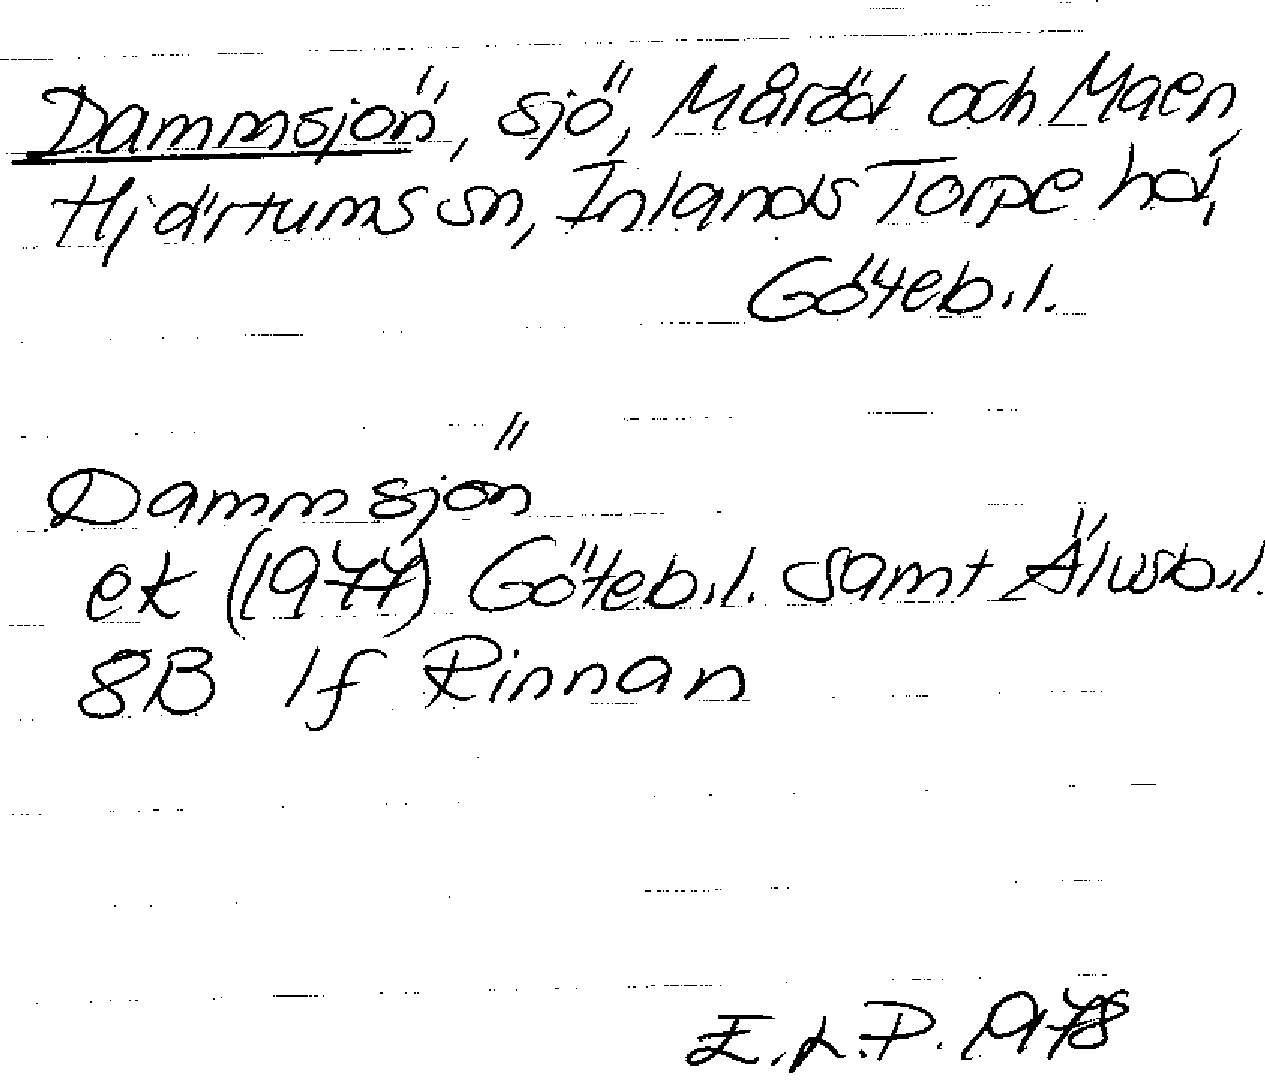 Dammsjön, sjö, Måröd och Maen,
Hjärtums sn, Inlands Torpe hd,
Göteb.l.
Dammsjön
ek (1977) Göteb.l. samt Älvsb.l.
8B 1f Rinnan
E.L.P. 1978